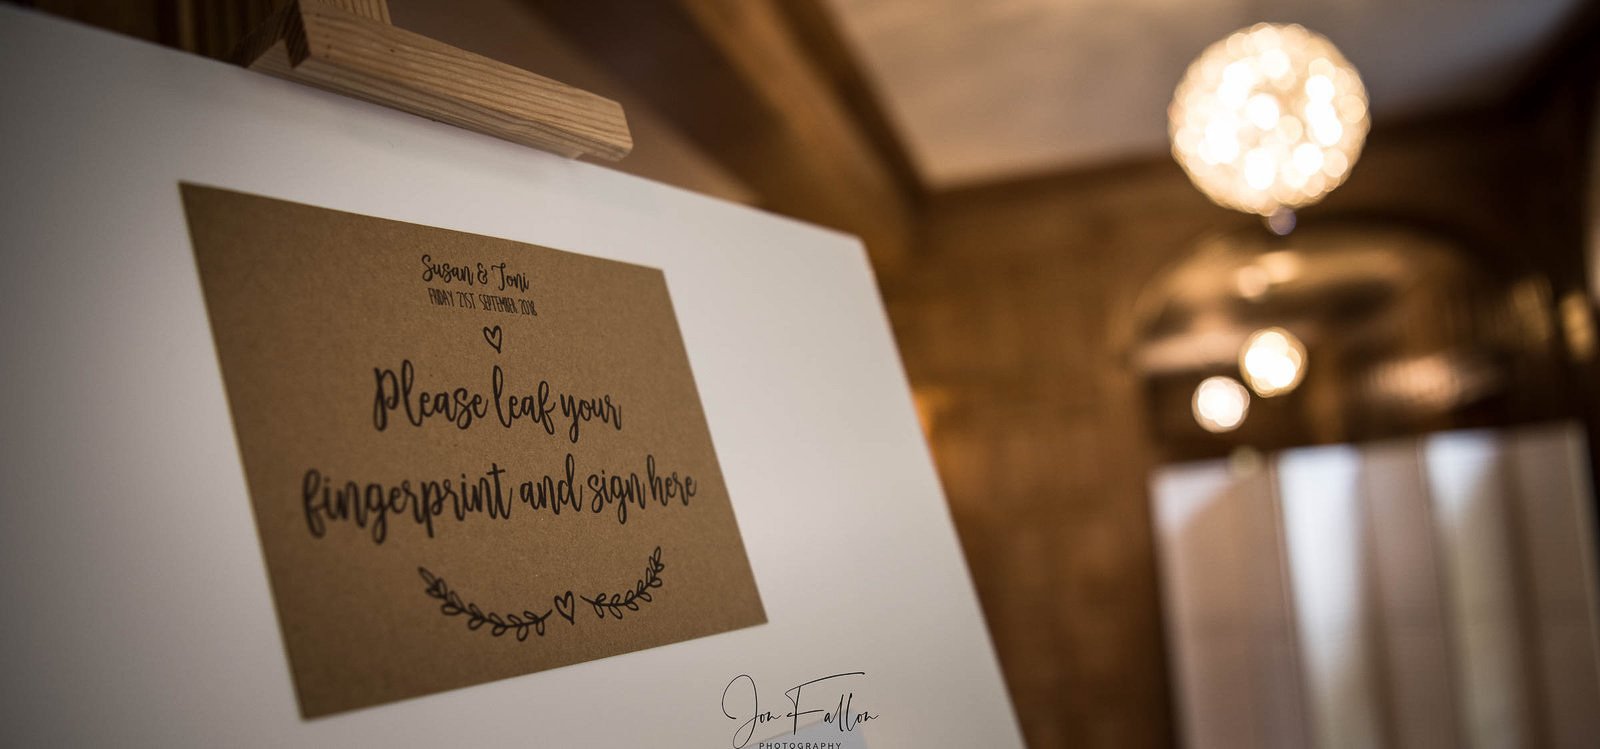 Susan & Toni
FRIDAY 21ST SEPTEMBER 2018
Please leaf your
fingerprint and sign here
Jon Fallon
PHOTOGRAPHY